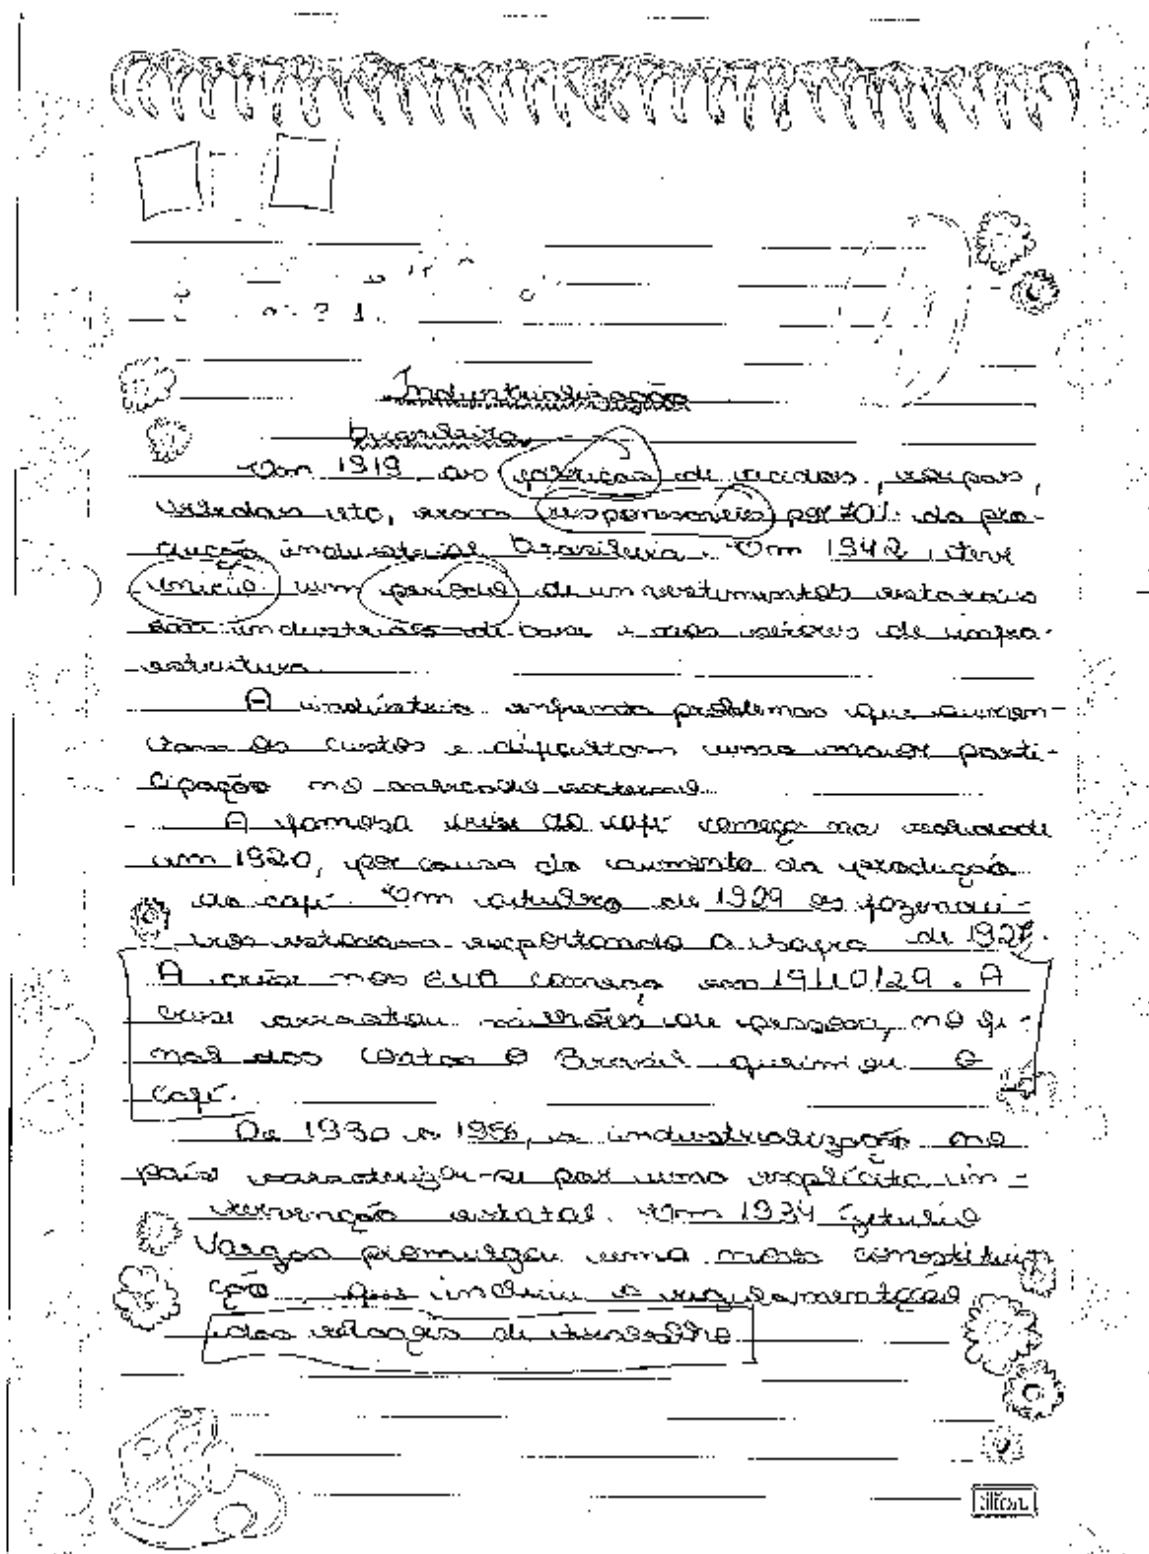 Industrialização
brasileira
Em 1919, as fábricas de tecidos, roupas,
 etc, eram responsaveis por 70% da pro-
dução industrial brasileira. Em 1942, teve
inicio um periodo de investimentos estatais
em industrias de base e nos setores de infra-
estrutura.
A indústria enfrenta problemas que aumen-
tam os custos e dificultam uma maior parti-
cipação no mercado external.
A famosa crise do café começa na verdade
em 1920, por causa do aumento da produção
do café. Em outubro de 1929 os fazendei-
ros estavam exportando a safra de 1927.
A crise nos EUA começa em 19/10/29. A
crise arrastou milhões de pessoa, no fi-
nal das contas o Brasil queimou o
café.
De 1930 a 1956, a industrialização no
país caracterizou-se por uma explícita in-
tervenção estatal. Em 1934 Getulio
Vargas promulgou uma nova constitui
ção, que incluiu a regulamentação
das relações de trabalho